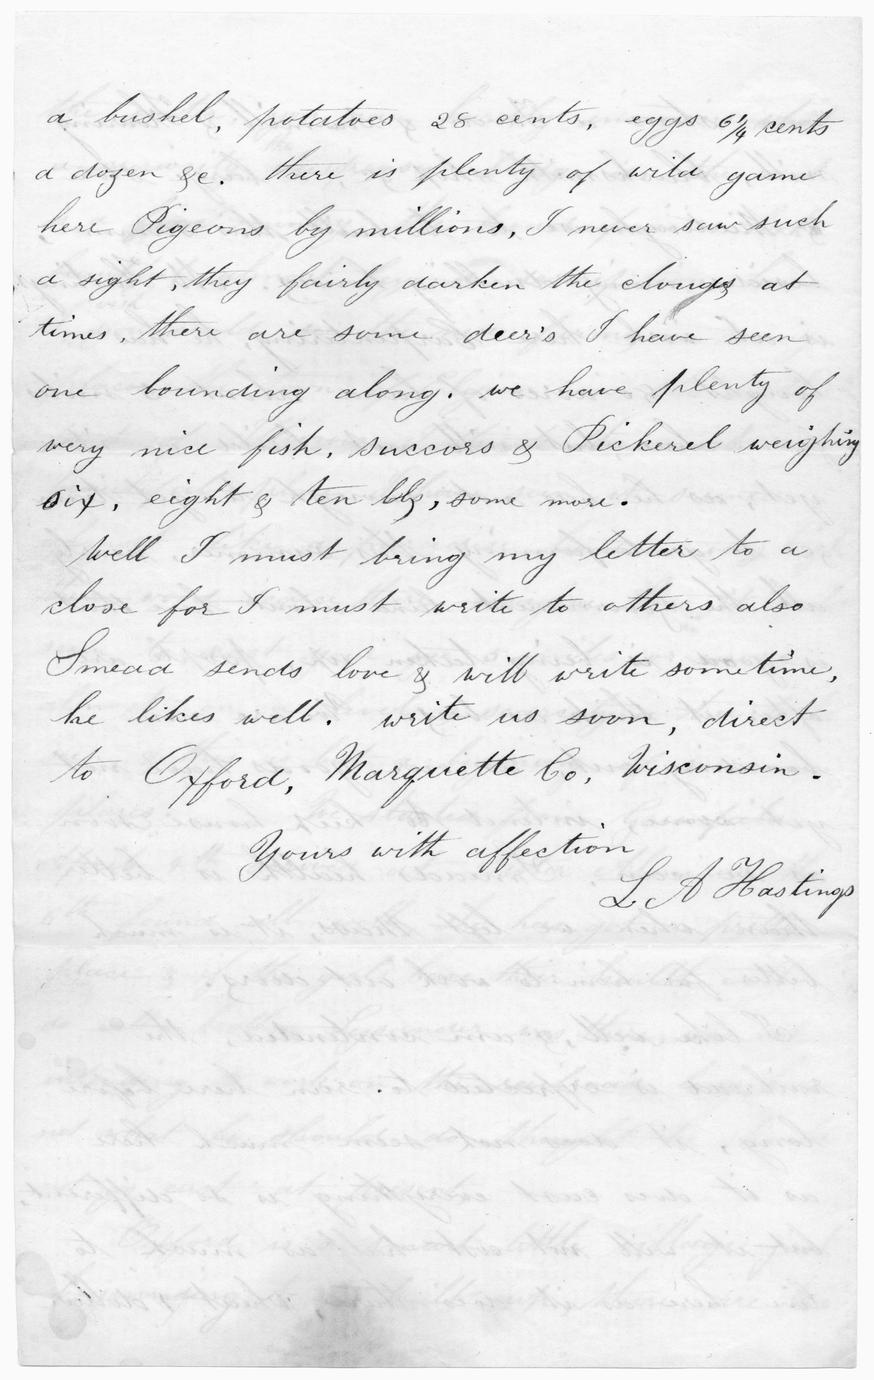 a bushel, potatoes 28 cents, eggs 6¼ cents
a dozen &c. there is plenty of wild game
here Pigeons by millions, I never saw such
a sight, they fairly darken the clouds at
times, there are some deer's I have seen
one bounding along. we have plenty of
very nice fish, succors & Pickerel weighing
six, eight & ten lbs, some more.
Well I must bring my letter to a
close for I must write to others also
Smead sends love & will write sometime,
he likes well. write us soon, direct
to Oxford, Marquette Co, Wisconsin.
Yours with affection
L A Hastings